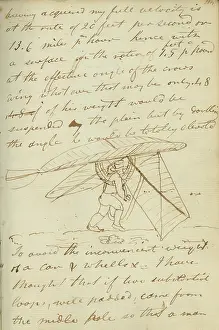 having acquired my full velocity is
at the rate of 20 feet pr second or
13.6 mile pr hour hence with
a surface for the ration of 1.5 pr pound
at the effective angle of the cross
wing what ever that may be only .8
of his weight would be
suspended the plain but by doubling
the angle he would be totally elevated
To avoid the inconvenient weight
of a car & wheels I have
thought that if two substantial
loops, well padded, came from
the middle pole so that a man